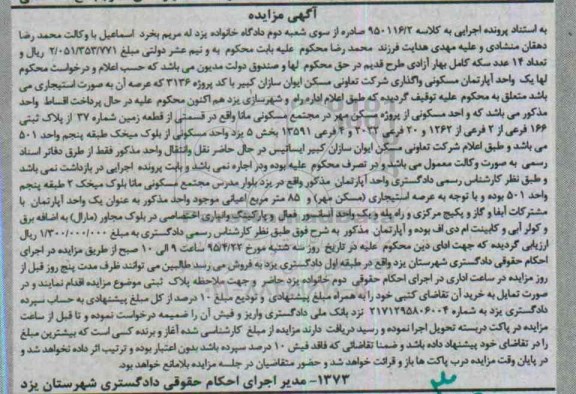 آگهی مزایده
به استناد پرونده اجرایی به کلاسه ۹۵۰۱۱۶/۲ صادره از سوی شعبه دوم دادگاه خانواده یزد له مریم بخرد اسماعیل با وکالت محمد رضا
دهقان منشادی و علیه مهدی هدایت فرزند محمد رضا محکوم علیه بابت محکوم به و نیم عشر دولتی مبلغ ۲/۰۵۱/۳۵۳/۷۷۱ ریال و
تعداد ۱۴ عدد سکه کامل بهار آزادی طرح قدیم در حق محکوم لها و صندوق دولت مدیون می باشد که حسب اعلام و درخواست محکوم
لها یک واحد آپارتمان مسکونی واگذاری شرکت تعاونی مسکن ایوان سازان کبیر با کد پروژه ۳۱۳۶ که عرصه آن به صورت استیجاری می
باشد متعلق به محکوم علیه توقیف گردید که طبق اعلام اداره راه و شهرسازی یزد هم اکنون محکوم علیه در حال پرداخت اقساط واحد
مذکور می باشد که واحد مسکونی از پروژه مسکن مهر در مجتمع مسکونی مانا واقع در قسمتی از قطعه زمین شماره ۳۷ از پلاک ثبتی
۱۶۶ فرعی از ۲ فرعی از ۱۲۶۲ و ۲۰ فرعی ۲۰۳۲ و ۴ فرعی ۱۳۵۹۱ بخش ۵ یزد واحد مسکونی از بلوک میخک طبقه پنجم واحد ۵۰۱
می باشد و طبق اعلام شرکت تعاونی مسکن ایوان سازان کبیر ایساتیس در حال حاضر نقل وانتقال واحد مذکور فقط از طرق دفاتر اسناد
رسمی به صورت وکالت معمول می باشد و در تصرف محکوم علیه بوده ودر اجاره نمی باشد و بابت پرونده اجرایی در بازداشت نمی باشد
و طبق نظر کارشناس رسمی دادگستری واحد آپارتمان مذکور واقع در یزد بلوار مدرس مجتمع مسکونی مانا بلوک میخک ۲ طبقه پنجم
واحد ۵۰۱ بوده و با توجه به عرصه استیجاری (مسکن مهر) و ۸۵ متر مربع اعیانی موجود واحد مذکور به عنوان یک واحد آپارتمان با
مشترکات آبفا و گاز و پکیج مرکزی و راه پله و یک واحد آسانسور فعال و پارکینگ وانباری اختصاصی در بلوک مجاور (مارال) به اضافه برق
و کولر آبی و کابینت ام دی اف بوده و آپارتمان مذکور به شرح فوق طبق نظر کارشناس رسمی دادگستری به مبلغ ۱/۳۰۰/۰۰۰/۰۰۰ ریال
ارزیابی گردیده که جهت ادای دین محکوم علیه در تاریخ روز سه شنبه مورخ ۹۵/۴/۲۲ ساعت ۹ الی ۱۰ صبح از طریق مزایده در اجرای
احکام حقوقی دادگستری شهرستان یزد واقع در طبقه اول دادگستری یزد به فروش می رسد طالبین می توانند ظرف مدت پنج روز قبل از
روز مزایده در ساعت اداری در اجرای احکام حقوقی دوم خانواده یزد حاضر و جهت ملاحظه پلاک ثبتی موضوع مزایده اقدام نمایند و در
صورت تمایل به خرید آن تقاضای کتبی خود را به همراه مبلغ پیشنهادی و تودیع مبلغ ۱۰ درصد از کل مبلغ پیشنهادی به حساب سپرده
دادگستری یزد به شماره ۲۱۷۱۲۹۵۸۰۶۰۰۴ نزد بانک ملی دادگستری واریز و فیش آن را ضمیمه درخواست نموده و تا قبل از ساعت
مزایده در پاکت دربسته تحویل اجرا نموده و رسید دریافت دارند مزایده از مبلغ کارشناسی شده آغاز و برنده کسی است که بیشترین مبلغ
را در تقاضای خود پیشنهاد داده باشد و ضمنا تقاضائی که فاقد فیش ۱۰ درصد سپرده باشد بدون اعتبار بوده و ترتیب اثر داده نخواهد شد و
در پایان وقت مزایده درب پاکت ها باز و قرائت خواهد شد و حضور متقاضیان در جلسه مزایده بلامانع خواهد بود.
۱۳۷۳- مدیر اجرای احکام حقوقی دادگستری شهرستان یزد